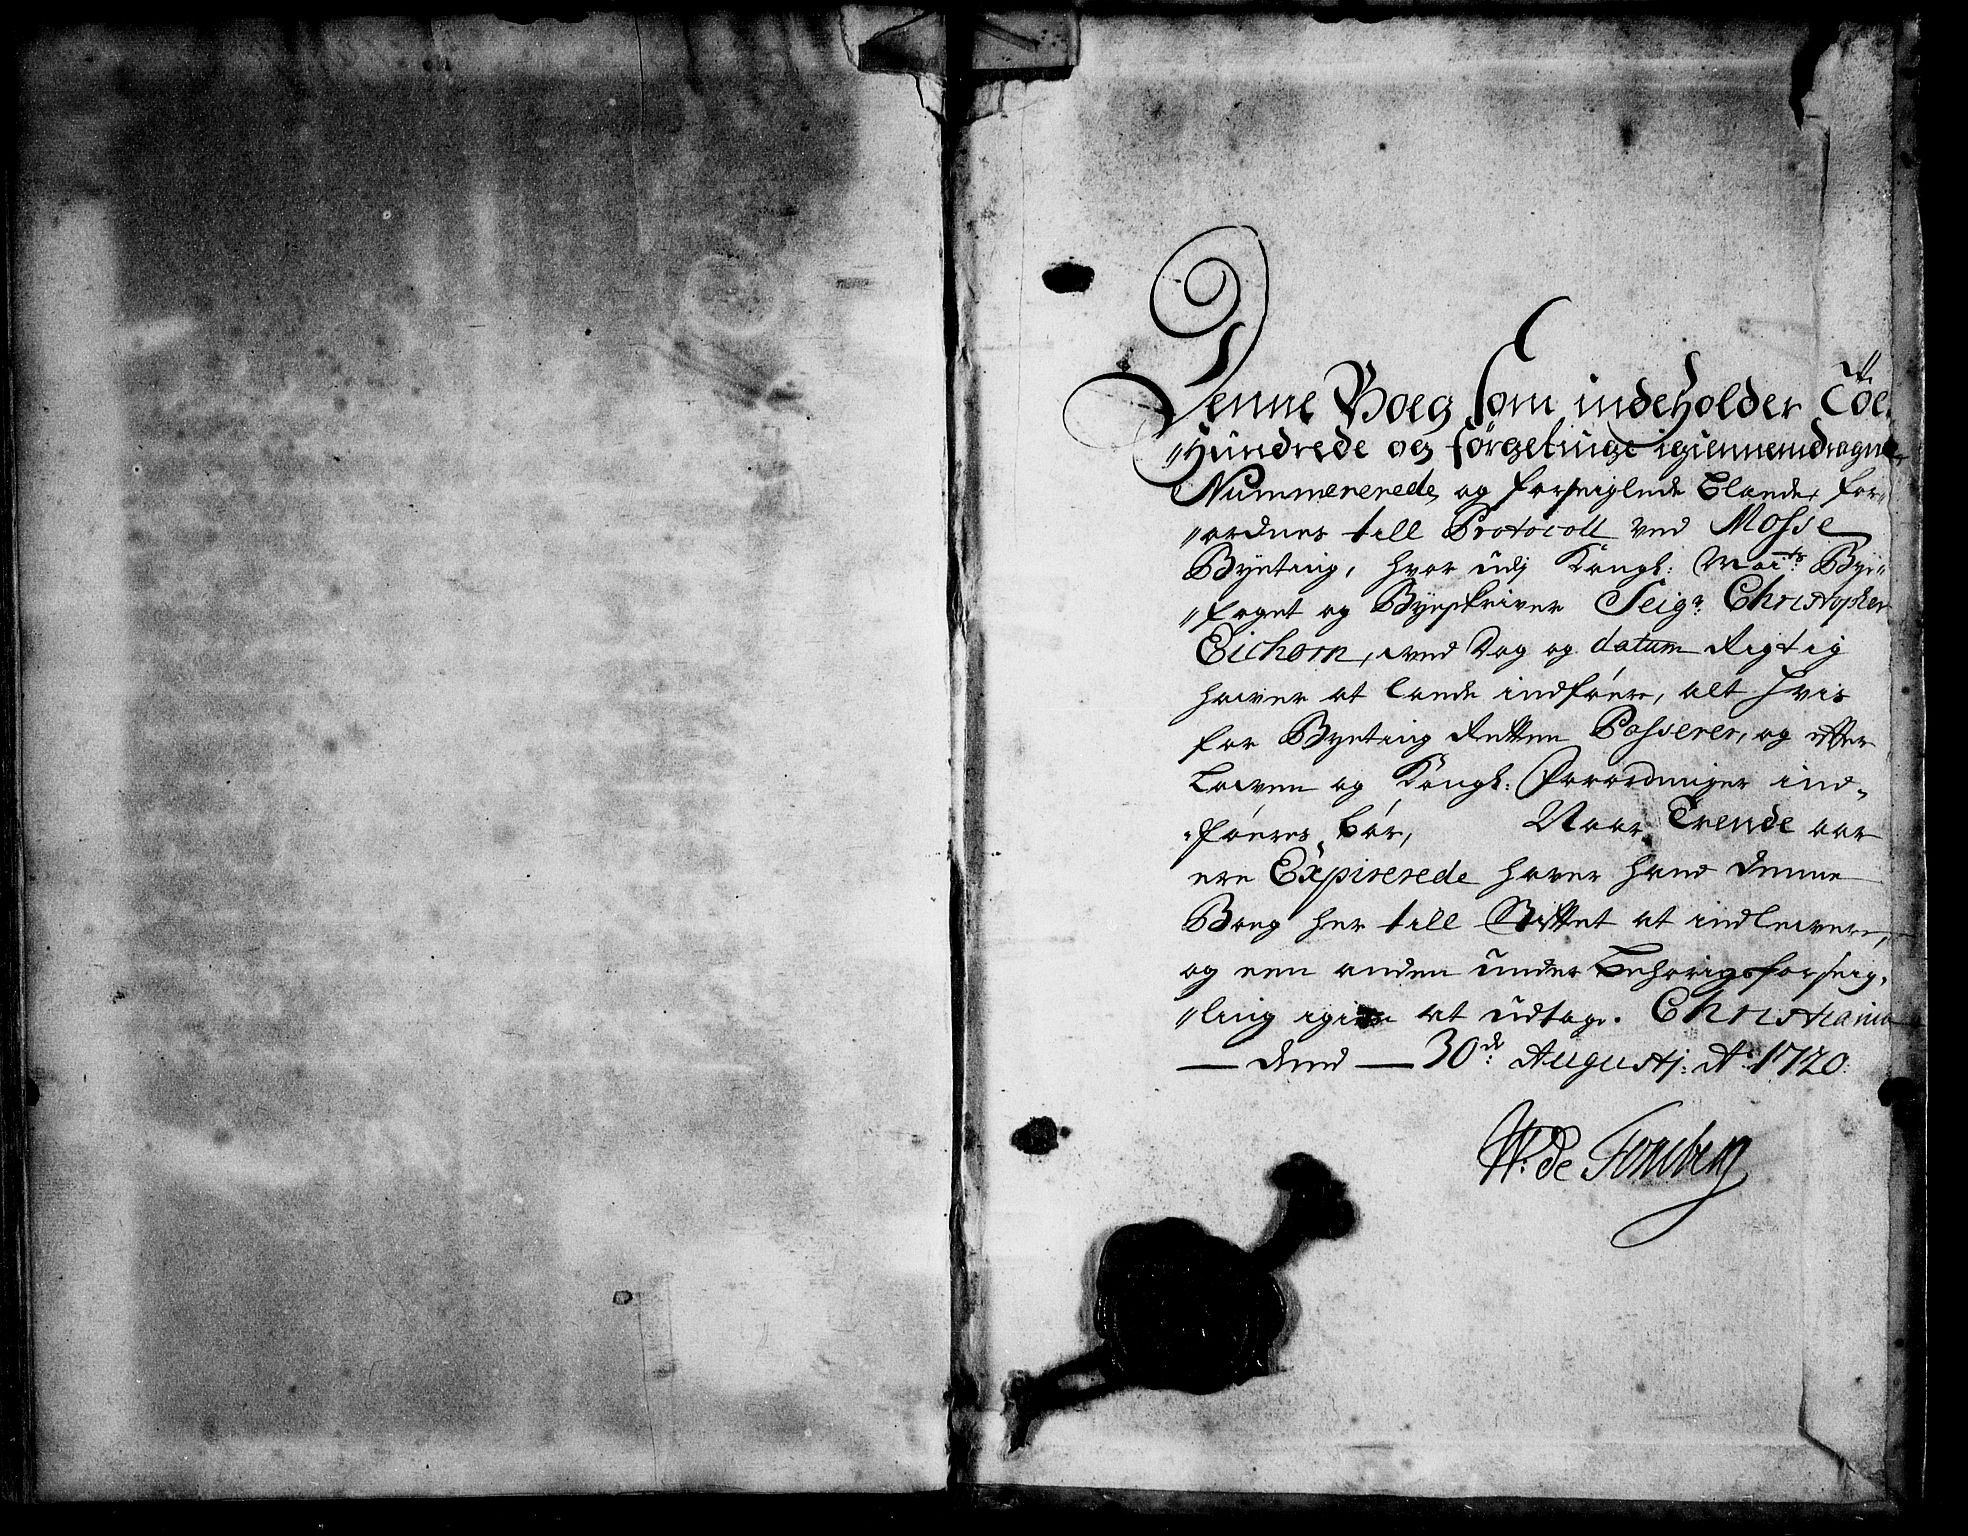 Denne Boeg som indeholder Toe
"Hundrede og førgetiuge igiennemdragne
Nummererede og forseiglede Blade, for-
"ordnes till Protocoll ved Mosse
Byeting, hvor udj Kongl: Maits: Bye-
"foget og Byeskriver Seigr: Christopher
Eichorn, ved Dag og datum Rigtig
haver at lade indføre, alt hvis
for Byeting Retten Passerer, og efter
Lowen og Kongl: Forordninger ind-
"føres bør, Naar Trende aar
ere Expirerede haver hand denne
Boeg her till Stiftet at indlevere,
og een anden under Behørig forseig-
"ling igien at udtage. Christiania
— dend — 30de: Augustj: Ao 1720.
W: de Tonsberg